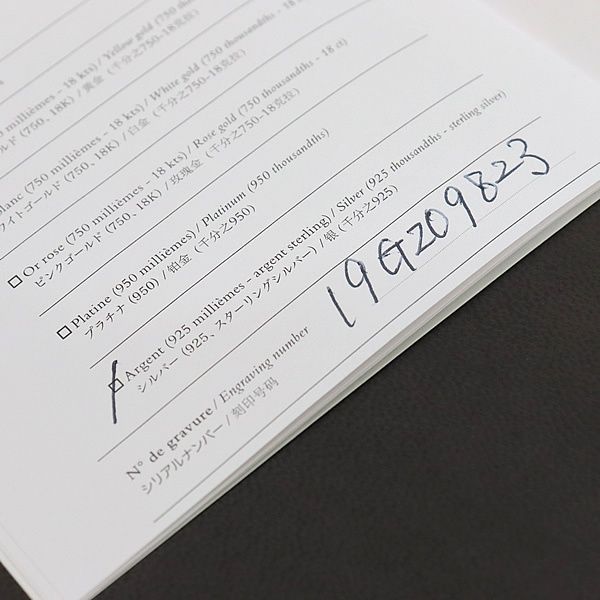 Yellow gold (750
millièmes - 18 kts) / White gold (750 thousandths - 18
ルド (750、18K) / 黄金 (千分之750-18克拉)
lanc (750 millièmes - 18 kts) / Rose gold (750 thousandths - 18 ct)
ワイトゴールド (750、18K) / 白金 (千分之750-18克拉)
Or rose (750 millièmes - 18 kts) / Rose gold (750 thousandths - 18 ct)
ピンクゴールド (750、18K) / 玫瑰金 (千分之750-18克拉)
Platine (950 millièmes) / Platinum (950 thousandths)
プラチナ (950) / 铂金 (千分之950)
Argent (925 millièmes - argent sterling) / Silver (925 thousandths - sterling silver)
シルバー (925、スターリングシルバー) / 银 (千分之925)
N° de gravure / Engraving number
シリアルナンバー / 刻印号码
19GZ09823